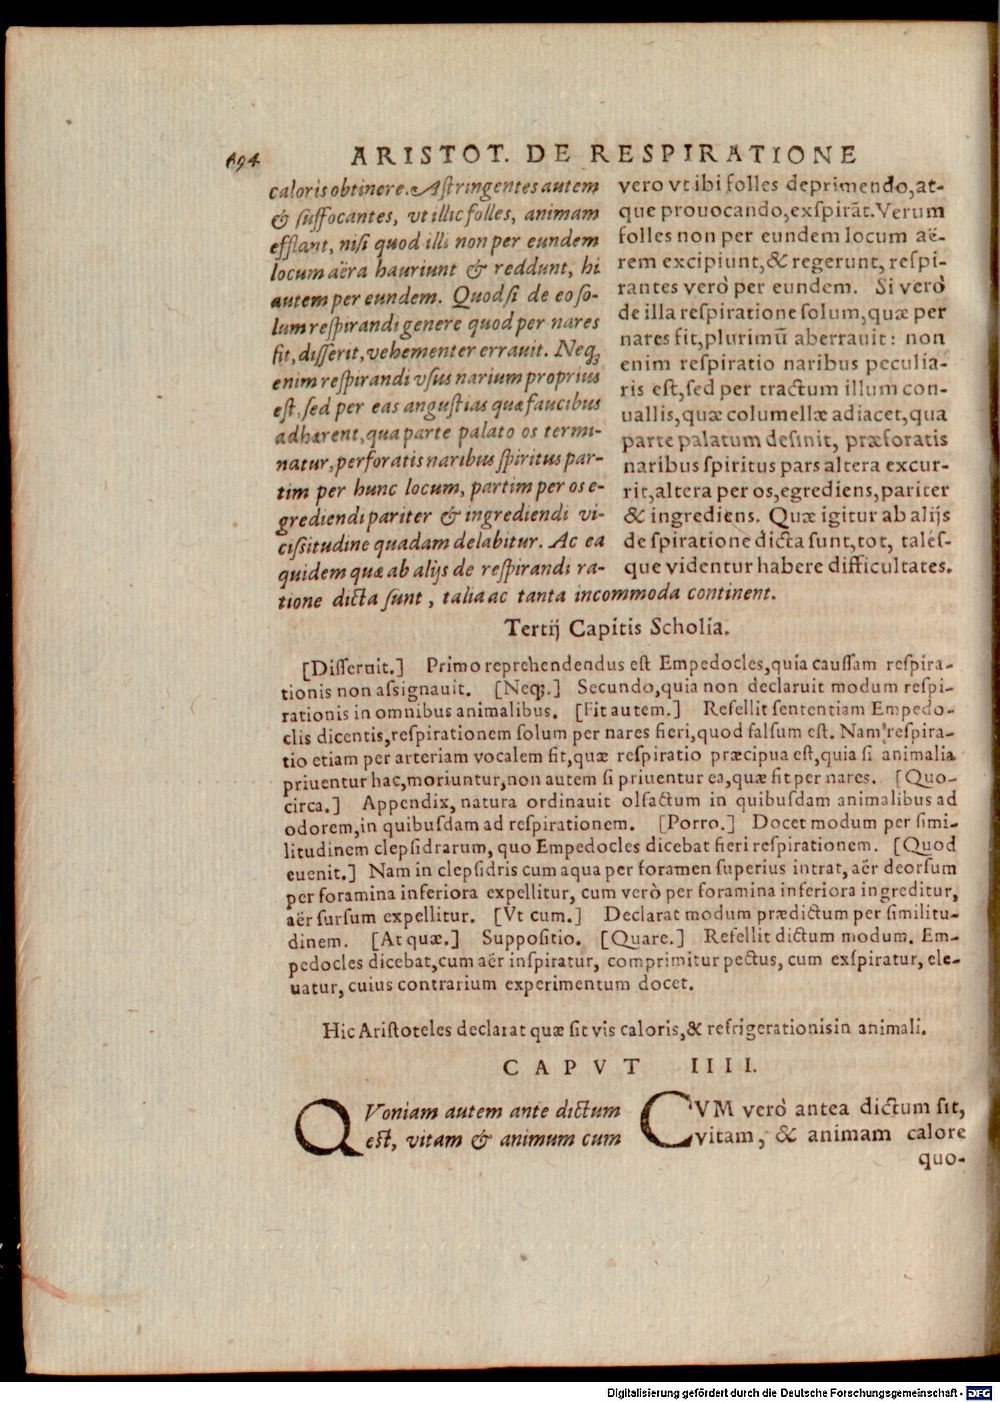 694 ARISTOT. DE RESPIRATIONE
caloris obtinere. Aſtringentes autem
& ſuffocantes, vt illic folles, animam
efflant, niſi quod illi non per eundem
locum aëra hauriunt & reddunt, hi
autem per eundem. Quod ſi de eo ſo-
lum reſpirandi genere quod per nares
fit, diſſerit, vehementer errauit. Neq;
enim reſpirandi vſus narium proprius
eſt, ſed per eas anguſtias quæ faucibus
adhærent, qua parte palato os termi-
natur, perforatis naribus ſpiritus par-
tim per hunc locum, partim per os e-
grediendi pariter & ingrediendi vi-
ciſsitudine quadam delabitur. Ac ea
quidem quæ ab alijs de reſpirandi ra-
tione dicta ſunt, talia ac tanta incommoda continent.
vero vt ibi folles deprimendo, at-
que prouocando, exſpirāt. Verum
folles non per eundem locum aë-
rem excipiunt, & regerunt, reſpi-
rantes verò per eundem. Si verò
de illa reſpiratione ſolum, quæ per
nares fit, plurimū aberrauit: non
enim reſpiratio naribus peculia-
ris eſt, ſed per tractum illum con-
uallis, quæ columellæ adiacet, qua
parte palatum deſinit, præforatis
naribus ſpiritus pars altera excur-
rit, altera per os, egrediens, pariter
& ingrediens. Quæ igitur ab alijs
de ſpiratione dicta ſunt, tot, taleſ-
que videntur habere difficultates.
Tertij Capitis Scholia.
[Diſſeruit.] Primo reprehendendus eſt Empedocles, quia cauſſam reſpira-
tionis non aſsignauit. [Neq;.] Secundo, quia non declaruit modum reſpi-
rationis in omnibus animalibus. [Fit autem.] Refellit ſententiam Empedo-
clis dicentis, reſpirationem ſolum per nares fieri, quod falſum eſt. Nam reſpira-
tio etiam per arteriam vocalem fit, quæ reſpiratio præcipua eſt, quia ſi animalia
priuentur hac, moriuntur, non autem ſi priuentur ea, quæ fit per nares. [Quo-
circa.] Appendix, natura ordinauit olfactum in quibuſdam animalibus ad
odorem, in quibuſdam ad reſpirationem. [Porro.] Docet modum per ſimi-
litudinem clepſidrarum, quo Empedocles dicebat fieri reſpirationem. [Quod
euenit.] Nam in clepſidris cum aqua per foramen ſuperius intrat, aër deorſum
per foramina inferiora expellitur, cum verò per foramina inferiora ingreditur,
aër ſurſum expellitur. [Vt cum.] Declarat modum prædictum per ſimilitu-
dinem. [At quæ.] Suppoſitio. [Quare.] Refellit dictum modum. Em-
pedocles dicebat, cum aër inſpiratur, comprimitur pectus, cum exſpiratur, ele-
uatur, cuius contrarium experimentum docet.
Hic Ariſtoteles declarat quæ ſit vis caloris, & refrigerationis in animali.
CAPVT IIII.
QVoniam autem ante dictum
eſt, vitam & animum cum
CVM verò antea dictum ſit,
vitam, & animam calore
quo-
Digitalisierung gefördert durch die Deutsche Forschungsgemeinschaft - DFG